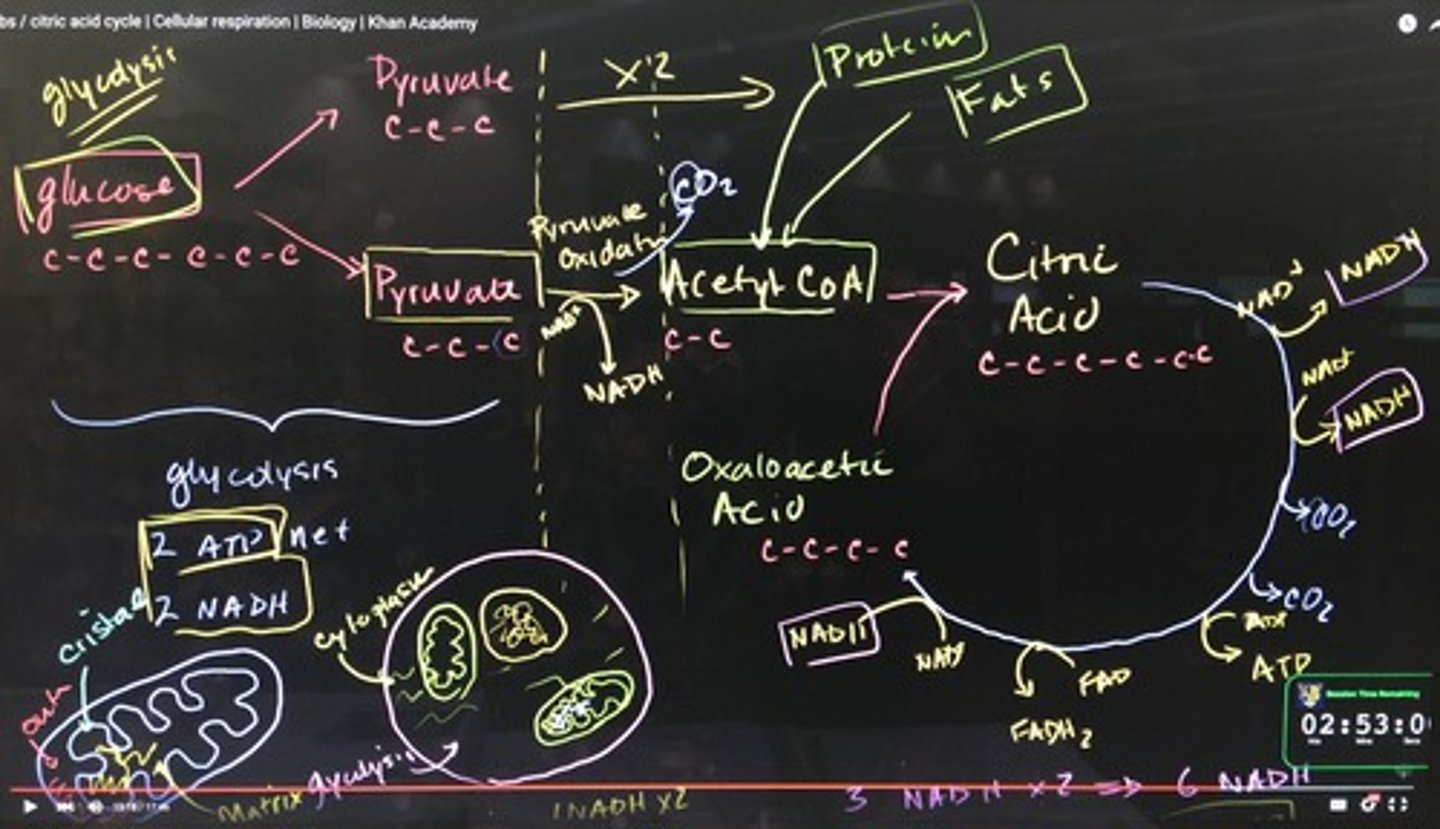 bs / citric acid cycle | Cellular respiration | Biology | Khan Academy
glycolysis
Pyruvate
C-C-C
X2
Protein
Fats
glucose
C-C-C-C-C-C
CO2
Pyruvate
Oxidatn
Pyruvate
C-C-C
NAD+
NADH
Acetyl CoA
C-C
Citric
Acid
C-C-C-C-C-C
NAD+
NADH
NAD+
NADH
CO2
CO2
ATP
Oxaloacetic
Acid
C-C-C-C
NADH
NAD+
FAD
FADH2
glycolysis
2 ATP net
2 NADH
cristae
cytoplasm
out
Matrix
glycolysis
1 NADH X2
3 NADH x2 => 6 NADH
Session Time Remaining
02:53:0